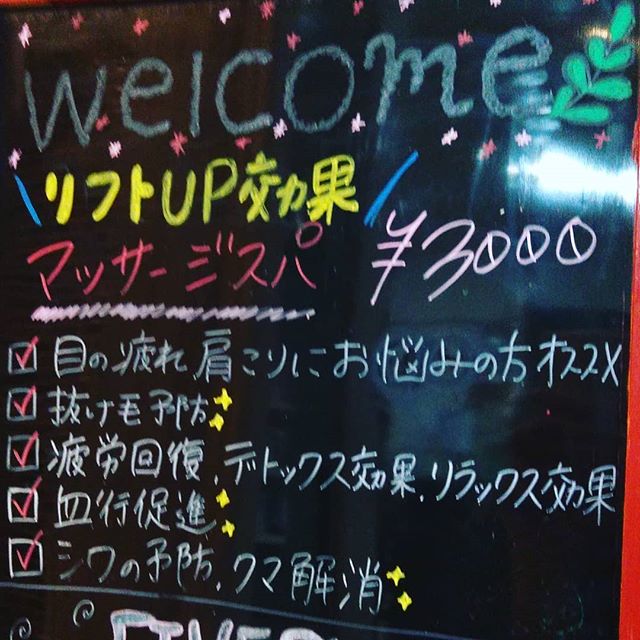 welcome
リフトUP効果
マッサージスパ ¥3000
目の疲れ肩こりにお悩みの方オススメ
抜け毛予防
疲労回復、デトックス効果、リラックス効果
血行促進
シワの予防、クマ解消